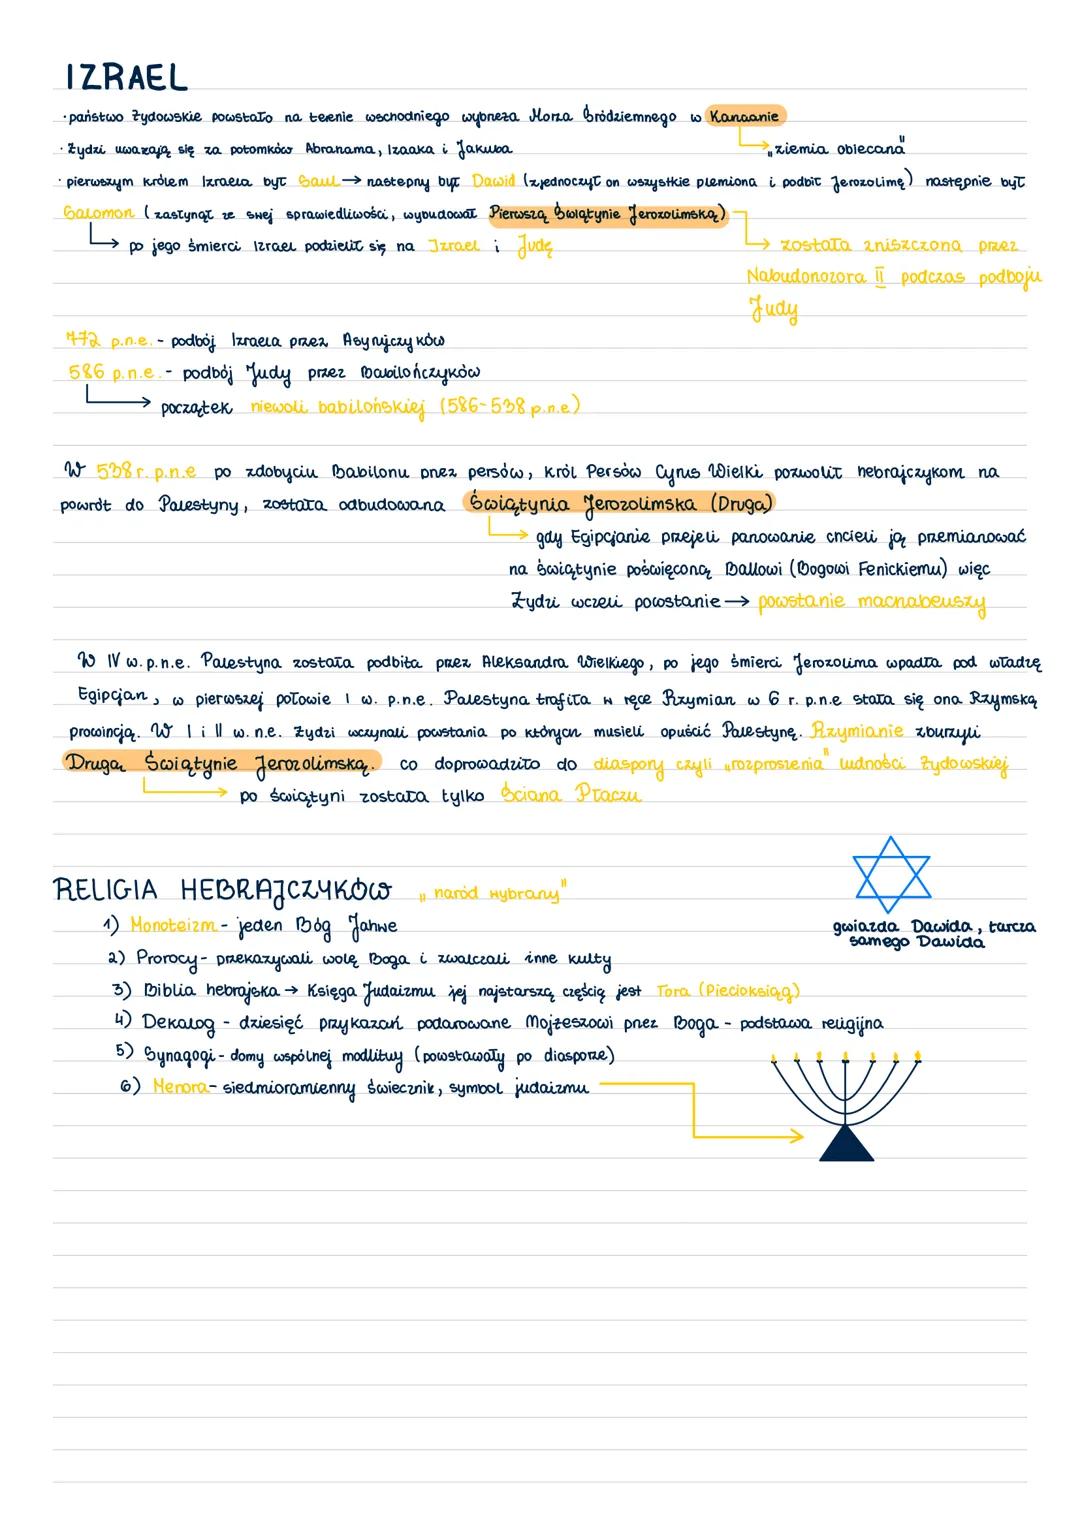 IZRAEL
· państwo żydowskie powstało na terenie wschodniego wybrzeża Morza Śródziemnego w Kanaanie
· Żydzi uważają się za potomków Abrahama, Izaaka i Jakuba
„ziemia obiecana"
· pierwszym królem Izraela był Saul → następny był Dawid (zjednoczył on wszystkie plemiona i podbił Jerozolimę) następnie był
Salomon (zasłynął ze swej sprawiedliwości, wybudował Pierwszą Świątynie Jerozolimską)
po jego śmierci Izrael podzielił się na Izrael i Judę
została zniszczona przez
Nabudonozora II podczas podboju
Judy
772 p.n.e. - podbój Izraela przez Asyryjczyków
586 p.n.e. - podbój Judy przez Babilończyków
początek niewoli babilońskiej (586-538 p.n.e)
W 538 r. p.n.e po zdobyciu Babilonu przez persów, król Persów Cyrus Wielki pozwolił hebrajczykom na
powrót do Palestyny, została odbudowana Świątynia Jerozolimska (Druga)
gdy Egipcjanie przejeli panowanie chcieli ją przemianować
na świątynie poświęconą Ballowi (Bogowi Fenickiemu) więc
Żydzi wczeli powstanie → powstanie machabeuszy
W IV w. p.n.e. Palestyna została podbita przez Aleksandra Wielkiego, po jego śmierci Jerozolima wpadła pod władzę
Egipcjan, w pierwszej połowie I w. p.n.e. Palestyna trafiła w ręce Rzymian w 6 r. p.n.e stała się ona Rzymską
prowincją. W I i II w. n.e. żydzi wczynali powstania po których musieli opuścić Palestynę. Rzymianie zburzyli
Drugą Świątynie Jerozolimską. co doprowadziło do diaspory czyli „rozproszenia" ludności żydowskiej
po świątyni została tylko Ściana Płaczu
RELIGIA HEBRAJCZYKÓW „naród wybrany"
gwiazda Dawida, tarcza
samego Dawida
1) Monoteizm - jeden Bóg Jahwe
2) Prorocy - przekazywali wolę Boga i zwalczali inne kulty
3) Biblia hebrajska → Księga Judaizmu jej najstarszą częścią jest Tora (Pięcioksiąg)
4) Dekalog - dziesięć przykazań podarowane Mojżeszowi przez Boga - podstawa religijna
5) Synagogi - domy wspólnej modlitwy (powstawały po diasporze)
6) Menora - siedmioramienny świecznik, symbol judaizmu